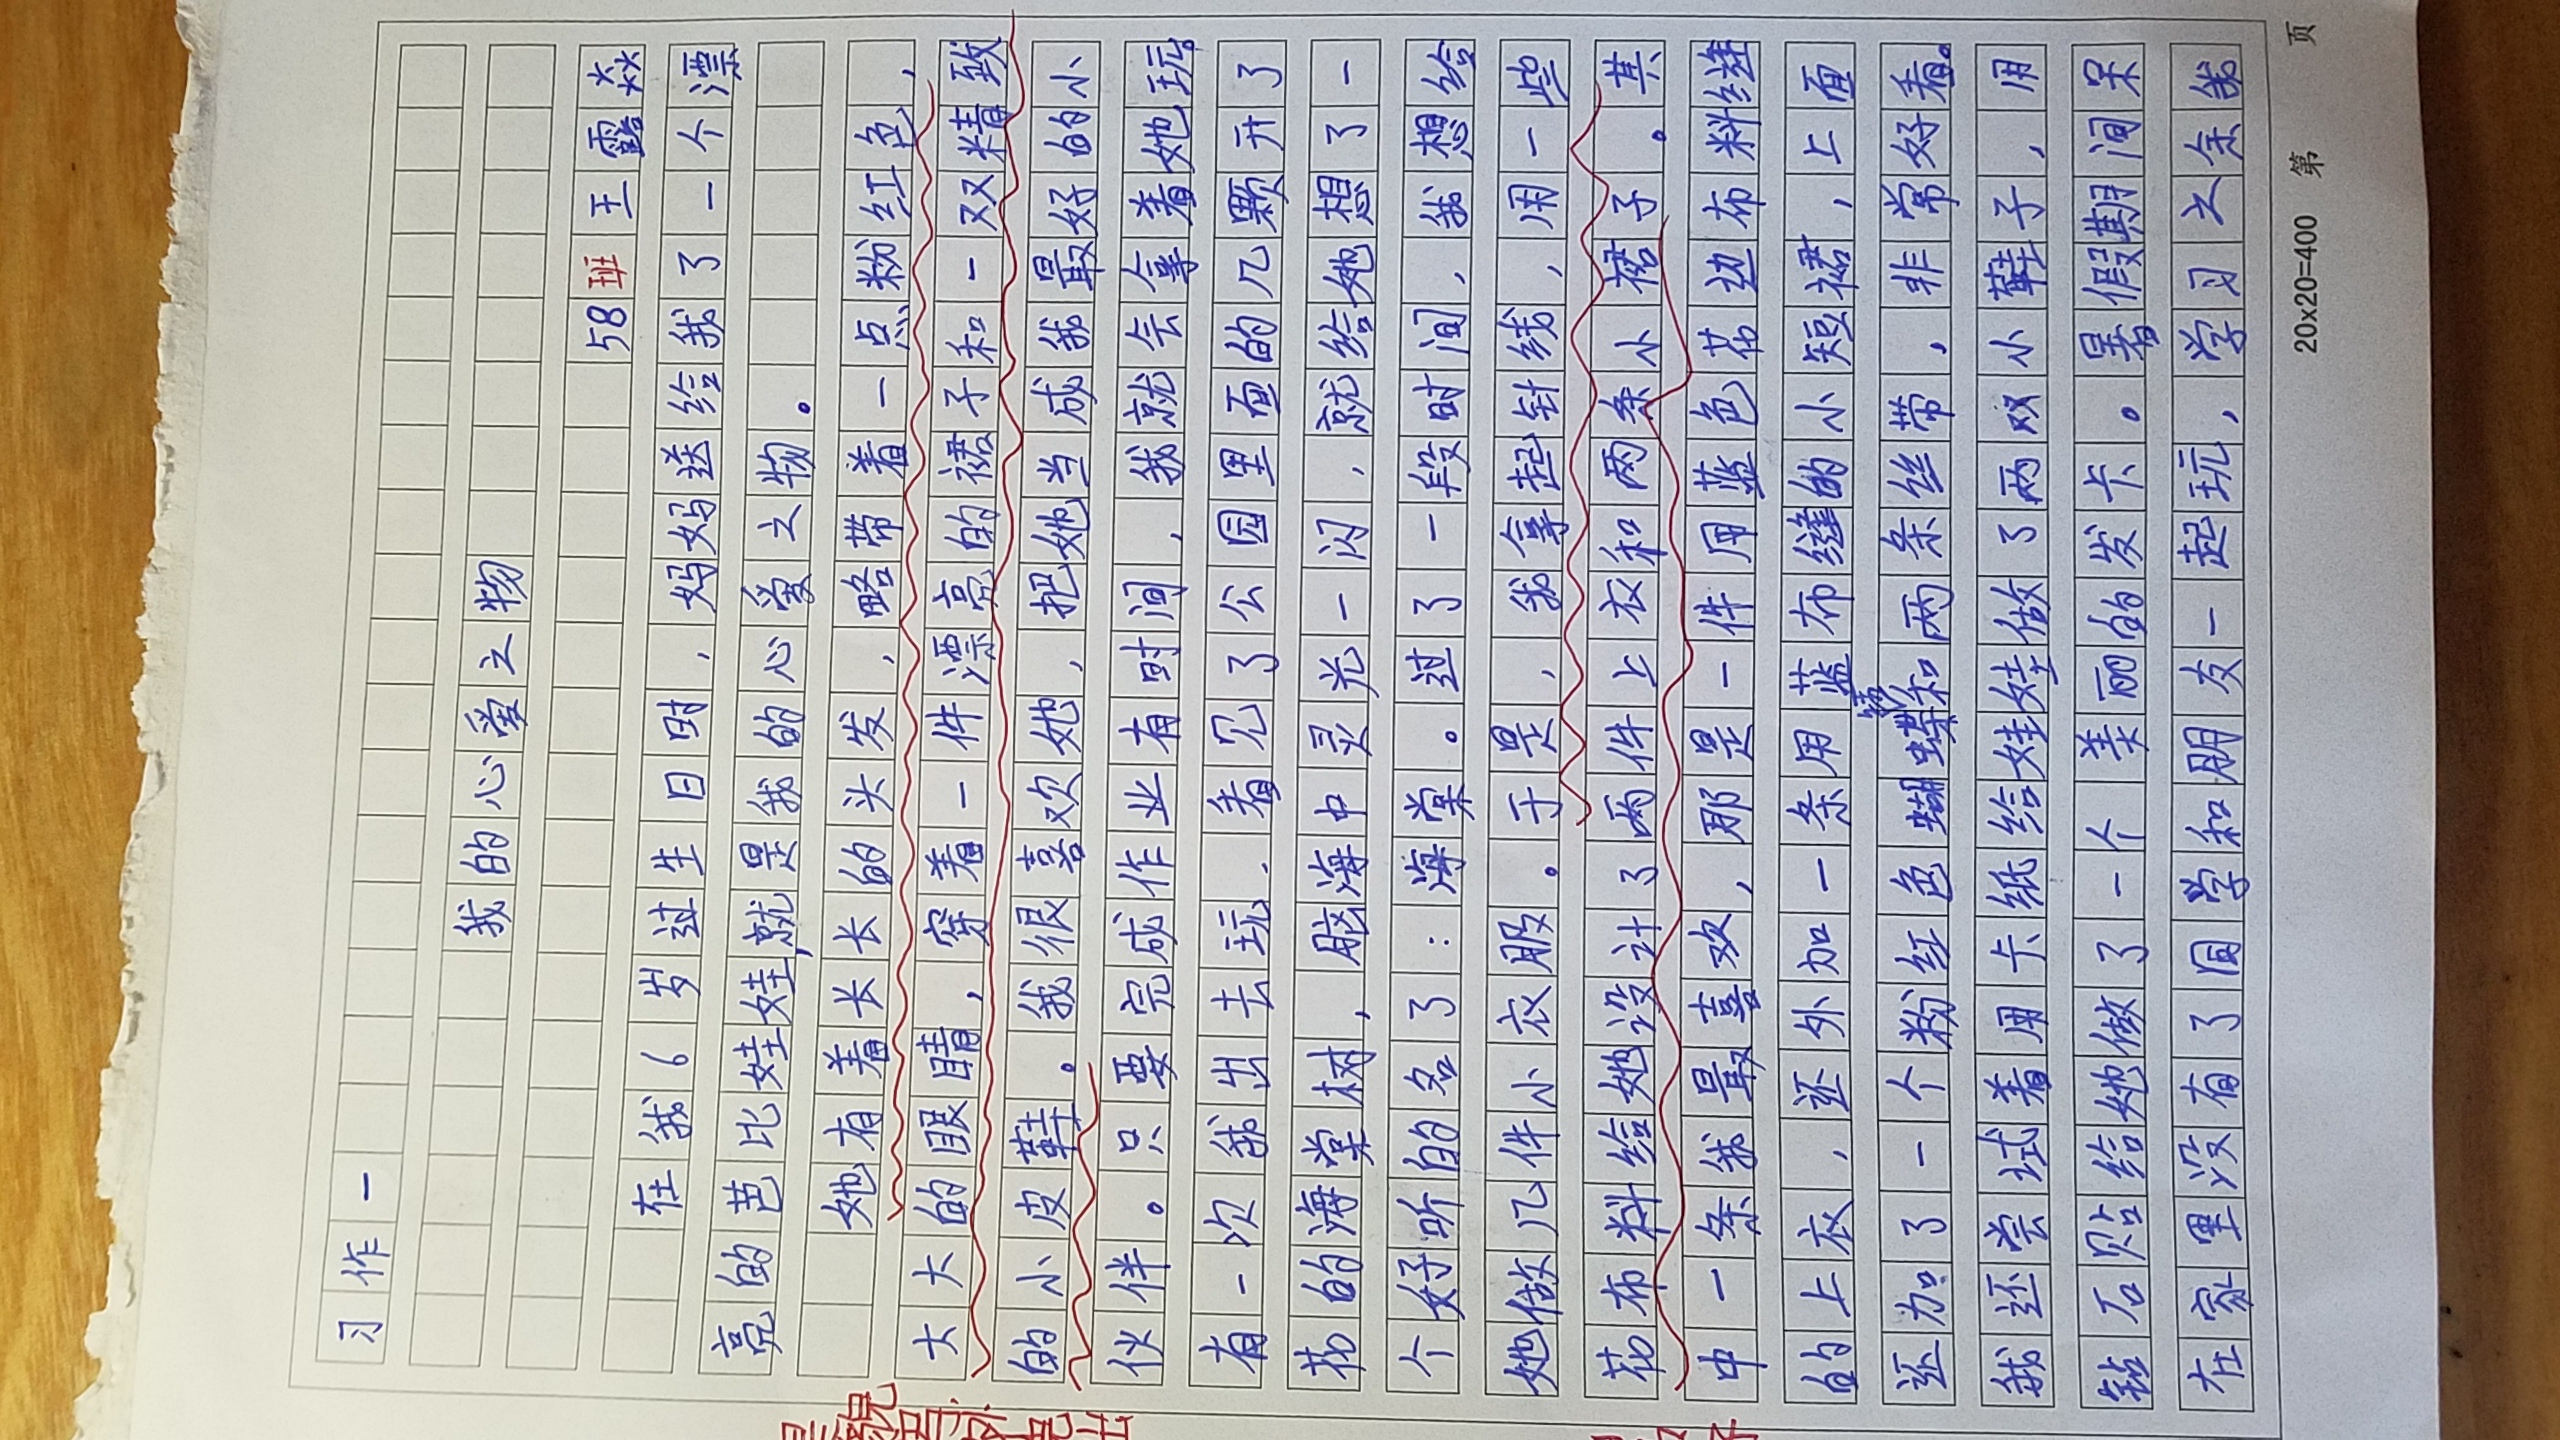 习作一
我的心爱之物
58班王露焱
在我6岁过生日时，妈妈送给我了一个漂
亮的芭比娃娃,就是我的心爱之物。
她有着长长的头发，略带着一点粉红色，
大大的眼睛，穿着一件漂亮的裙子和一双精致
的小皮鞋。我很喜欢她，把她当成我最好的小
伙伴。只要完成作业有时间，我就会拿着她玩。
有一次我出去玩，看见了公园里面的几颗开了
花的海棠树，脑海中灵光一闪，就给她想了一
个好听的名了：海棠。过了一段时间，我想给
她做几件小衣服。于是，我拿起针线，用一些
花布料给她设计了两件上衣和两条小裙子。其
中一条我最喜欢，那是一件用蓝色花边布料缝
的上衣，还外加一条用蓝布缝的小短裙，上面
还加了一个粉红色蝴蝶结和两条丝带，非常好看。
我还尝试着用卡纸给娃娃做了两双小鞋子，用
钻石贴给她做了一个美丽的发卡。暑假期间呆
在家里没有了同学和朋友一起玩，学习之余我
20x20=400 第 页